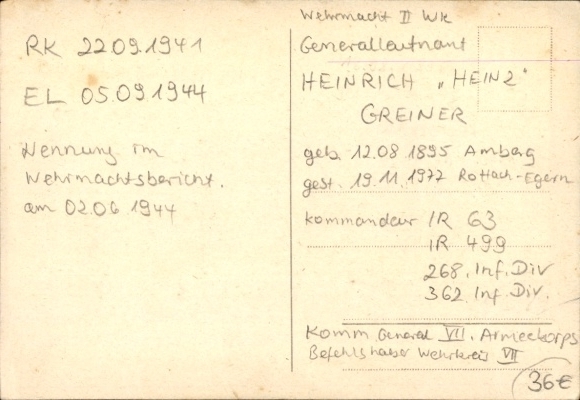 RK 22.09.1941
EL 05.09.1944
Nennung im
Wehrmachtsbericht.
am 02.06.1944
Wehrmacht II WK
Generalleutnant
HEINRICH „HEINZ"
GREINER
geb. 12.08.1895 Amberg
gest. 19.11.1977 Rottach-Egern
Kommandeur IR 63
IR 499
268. Inf. Div
362 Inf. Div.
Komm. General VII. Armeekorps
Befehlshaber Wehrkreis VII
36€